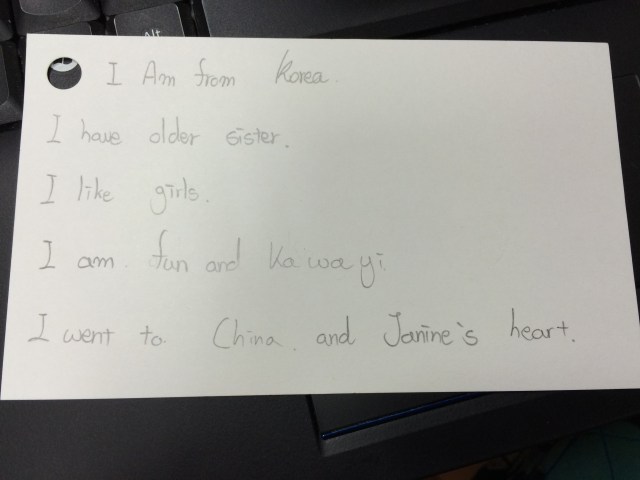 I Am from Korea.
I have older sister.
I like girls.
I am fun and Kawayi.
I went to China. and Janine's heart.